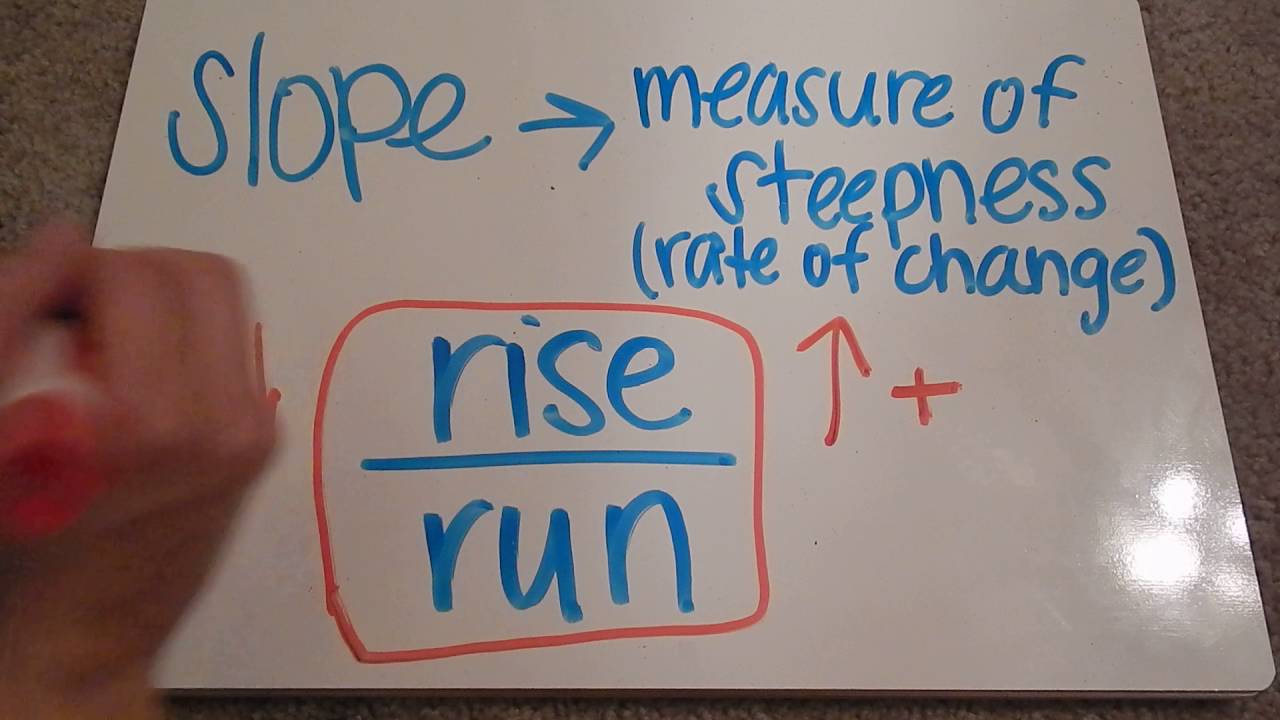 slope → measure of
steepness
(rate of change)
rise
run
↑ +